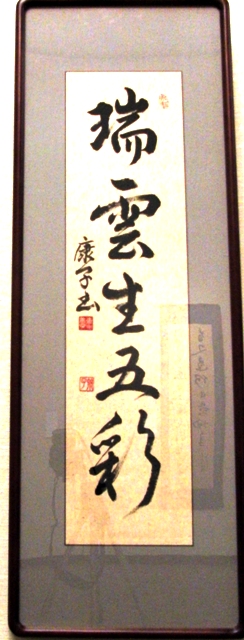 瑞雲生五彩
康子书